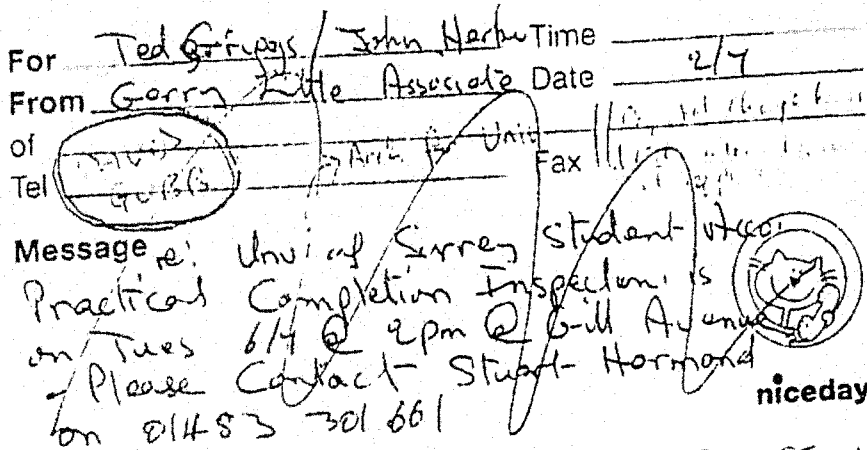 For Ted Griggs / John Time
From Gerry Little Associate Date 2/7
of
Tel Arch for Univ Fax
Message re: Univ of Surrey Student Acco.
Practical Completion Inspection is
on Tues 6/7 @ 2pm @ Gill Avenue
- Please Contact Stuart Hormond
on 01483 301661
niceday